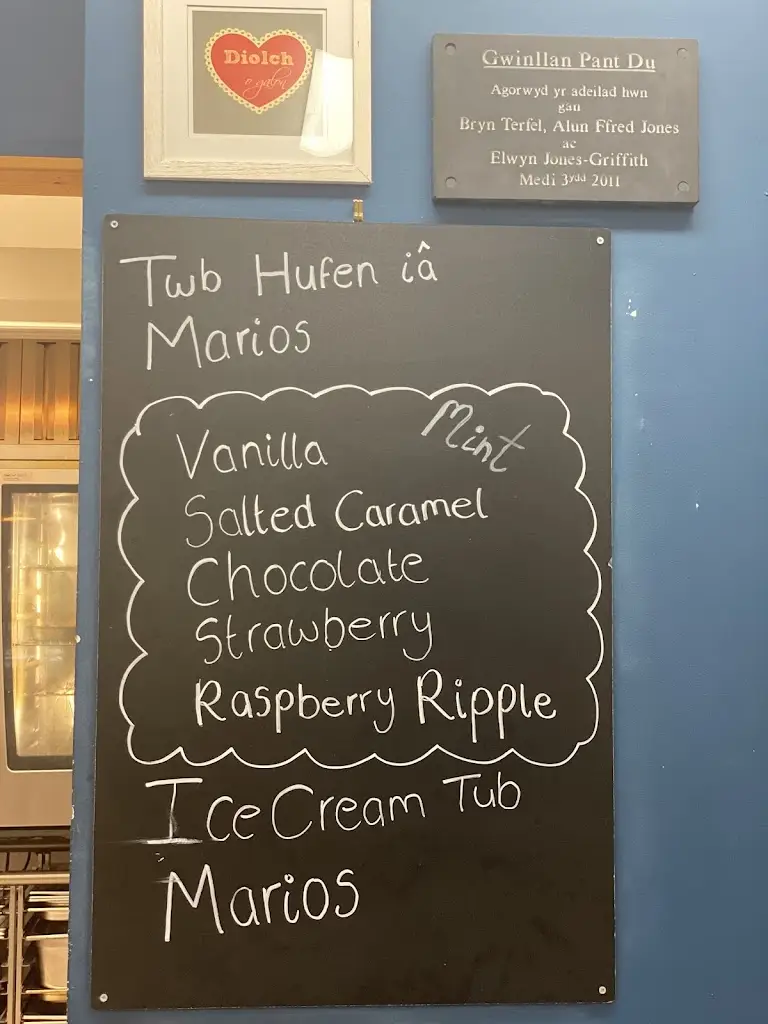 Diolch
o galon
Gwinllan Pant Du
Agorwyd yr adeilad hwn
gan
Bryn Terfel, Alun Ffred Jones
ac
Elwyn Jones-Griffith
Medi 3ydd 2011
Twb Hufen iâ
Marios
Mint
Vanilla
Salted Caramel
Chocolate
Strawberry
Raspberry Ripple
Ice Cream Tub
Marios